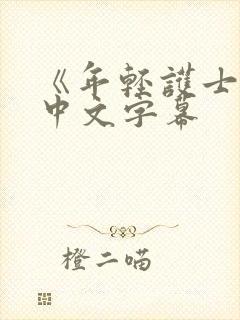 《年轻護士
中文字幕
橙二喵